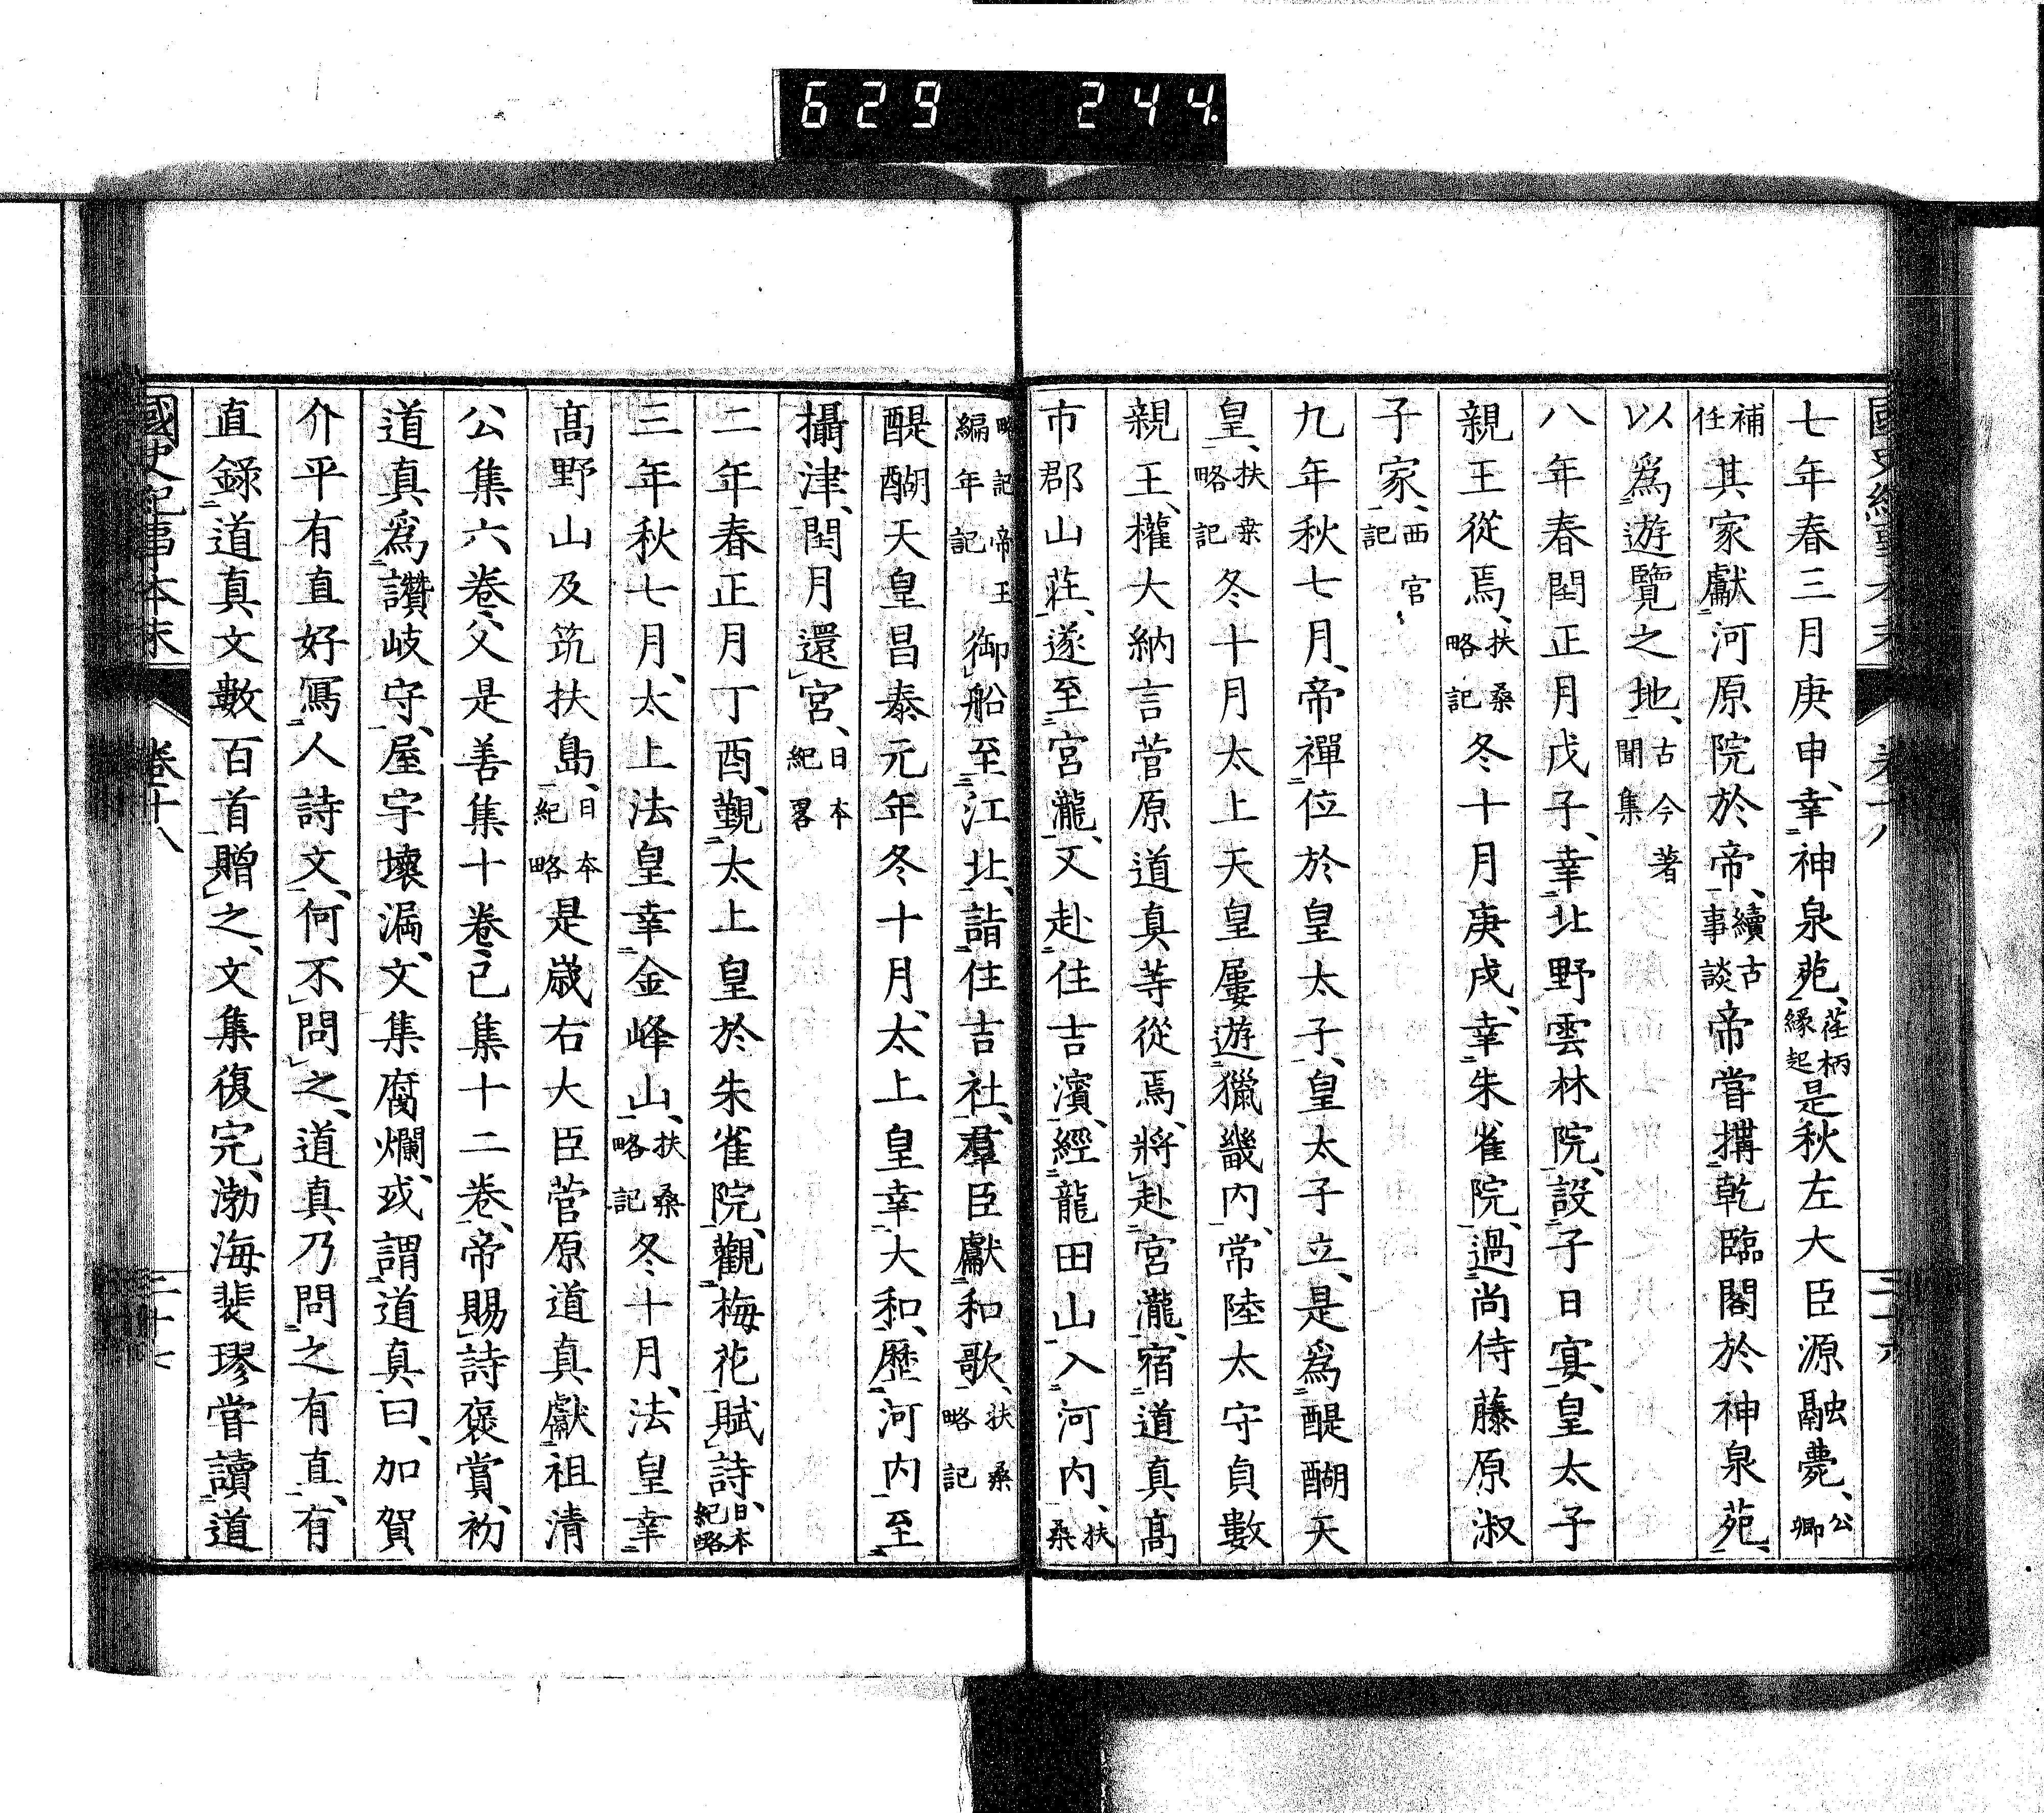 629 244.
國史紀事本末 卷十八
七年春三月庚申、幸神泉苑、荏柄緣起是秋左大臣源融薨、公卿
補任其家獻河原院於帝、續古事談帝嘗搆乾臨閣於神泉苑、
以爲遊覽之地、古今著聞集
八年春閏正月戊子、幸北野雲林院、設子日宴、皇太子
親王從焉、扶桑略記冬十月庚戌、幸朱雀院、過尚侍藤原淑
子家、西宮記
九年秋七月、帝禪位於皇太子、皇太子立、是爲醍醐天
皇、扶桒略記冬十月太上天皇屢遊獵畿内、常陸太守貞數
親王、權大納言菅原道真等從焉、將赴宮瀧、宿道真髙
市郡山莊、遂至宮瀧、又赴住吉濱、經龍田山入河内、扶桑
略記帝王編年記御船至江北、詣住吉社、羣臣獻和歌、扶桑略記
醍醐天皇昌泰元年冬十月、太上皇幸大和、歷河内至
攝津、閏月還宮、日本紀畧
二年春正月丁酉、覲太上皇於朱雀院、觀梅花賦詩、日本紀略
三年秋七月、太上法皇幸金峰山、扶桑略記冬十月、法皇幸
髙野山及筑扶島、日本紀略是歲右大臣菅原道真獻祖清
公集六卷、父是善集十卷、己集十二卷、帝賜詩褒賞、初
道真爲讚岐守、屋宇壞漏、文集腐爛、或謂道真曰、加賀
介平有直好寫人詩文、何不問之、道真乃問之有直、有
直錄道真文數百首贈之、文集復完、渤海裴璆嘗讀道
國史紀事本末 卷十八 二十七